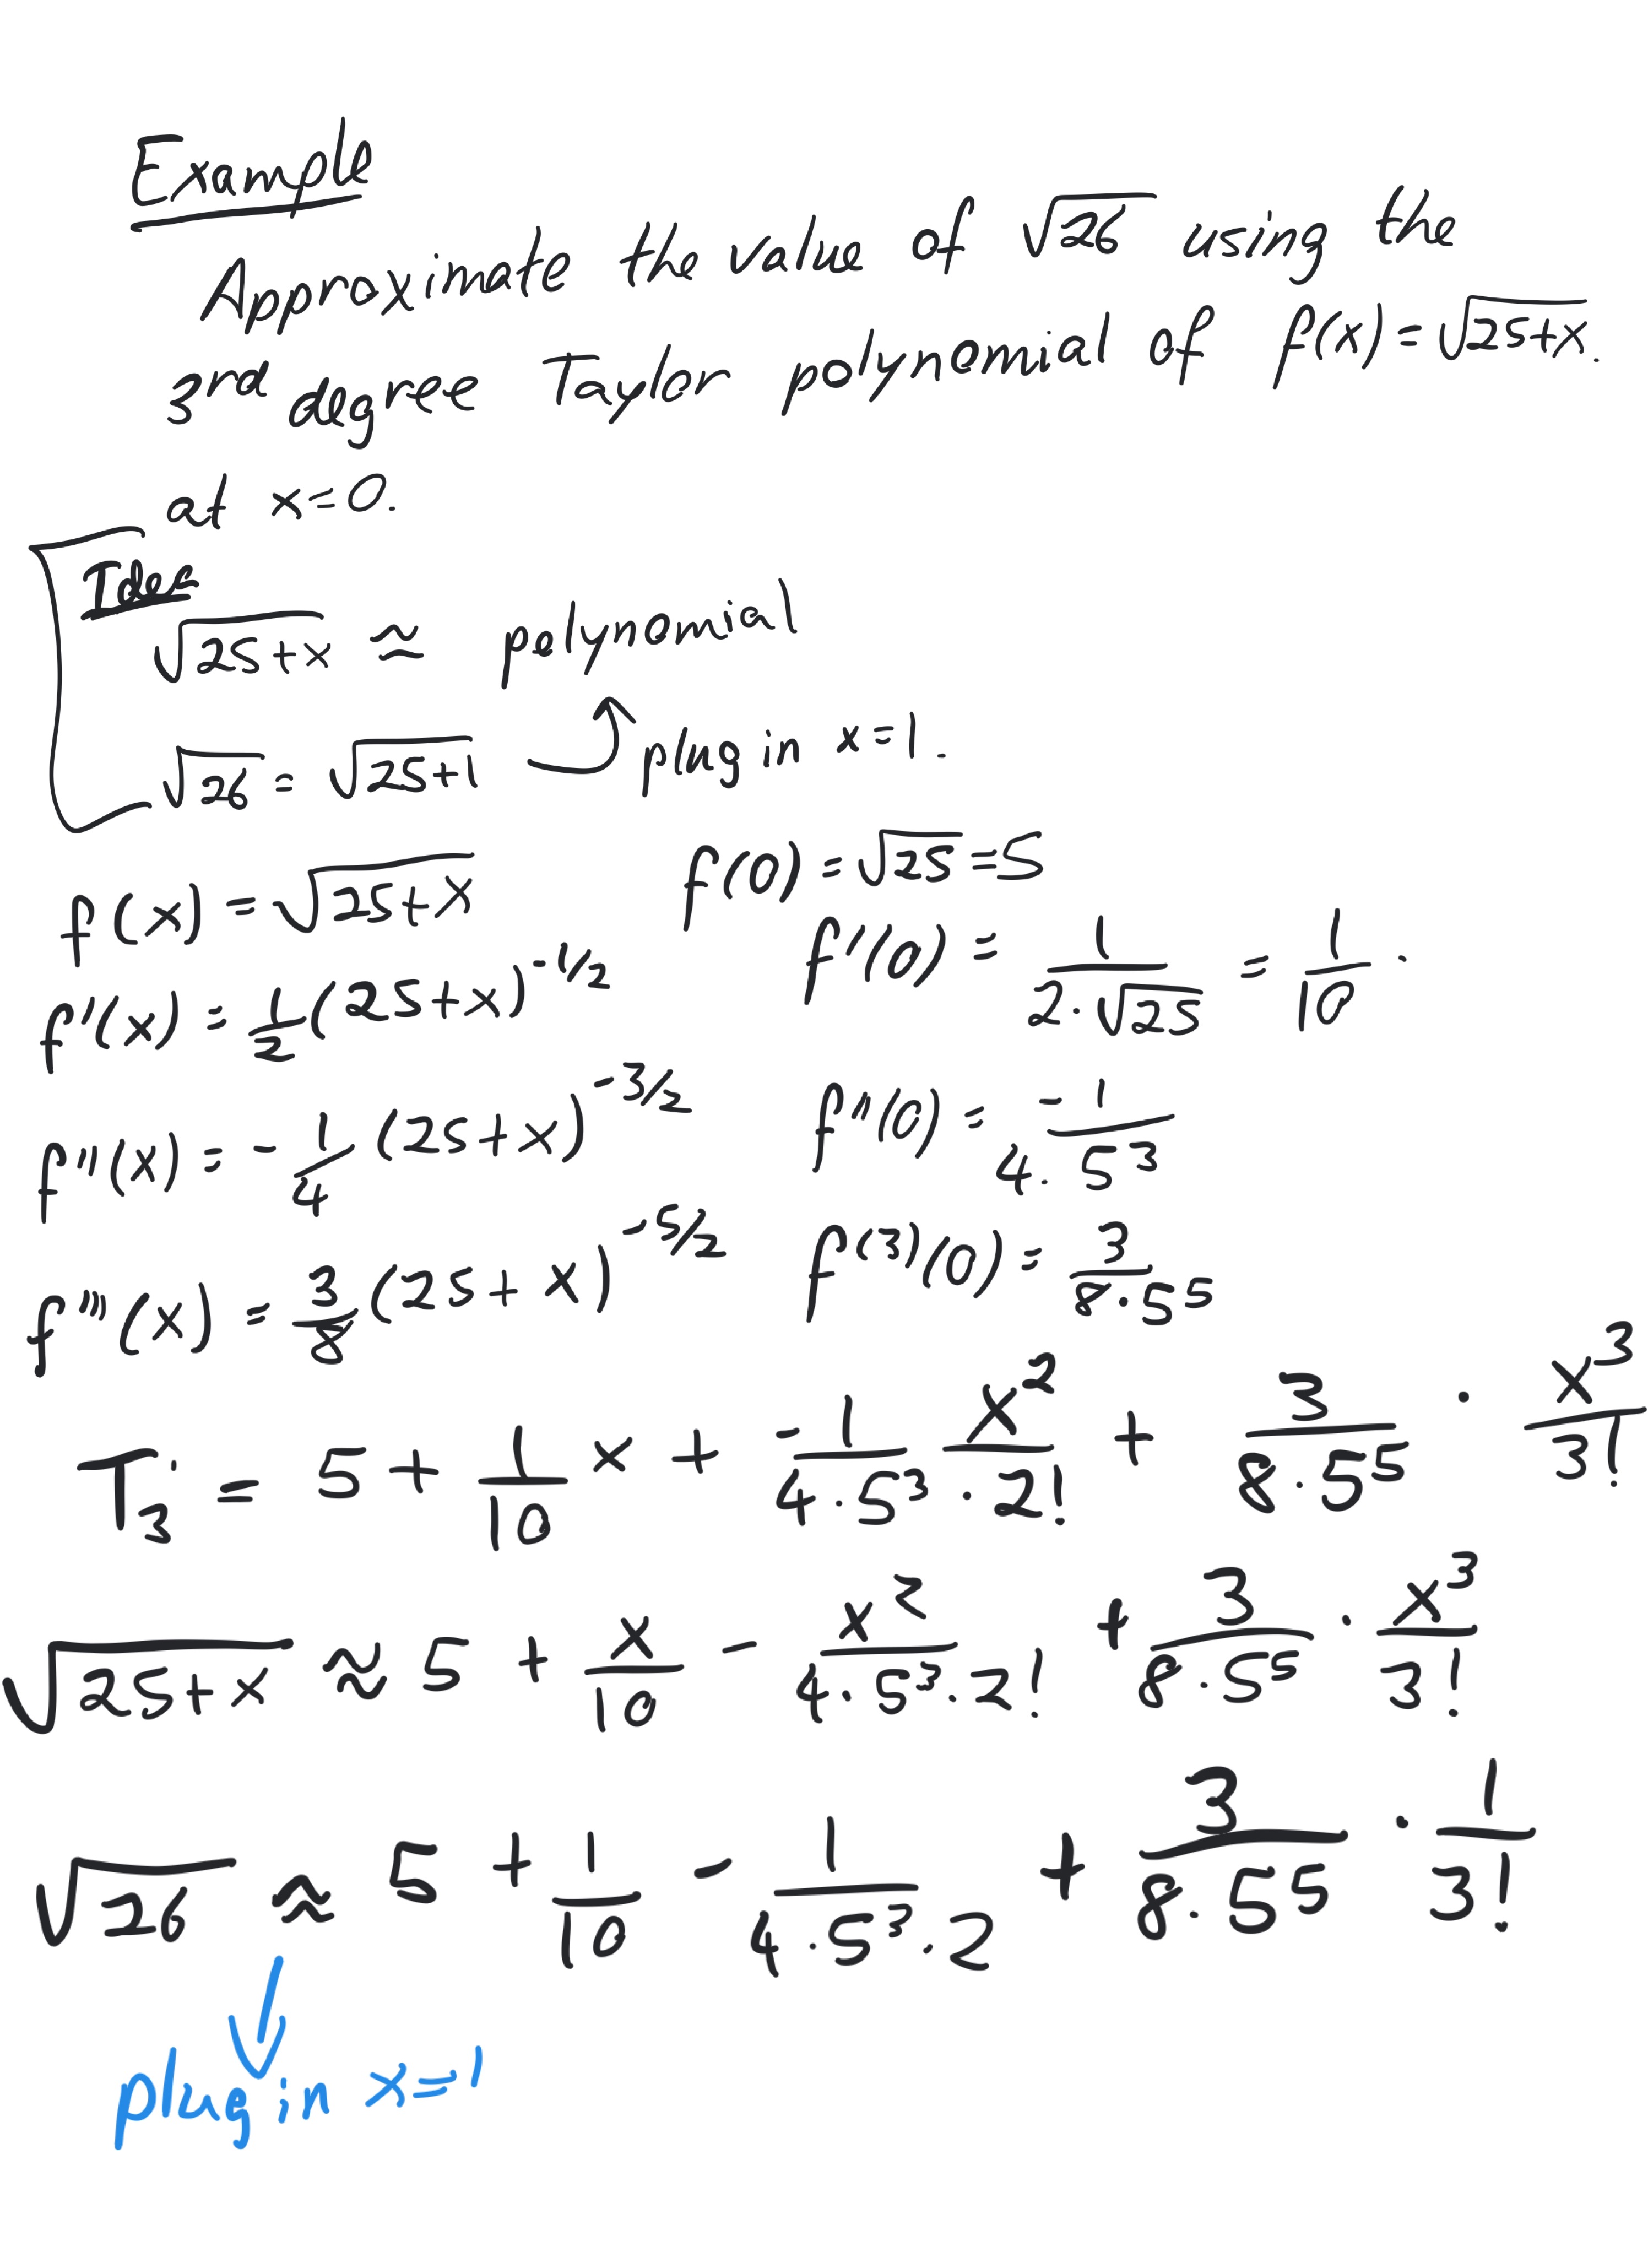 Example
Approximate the value of √26 using the
3rd degree Taylor polynomial of f(x) = √25+x.
at x=0.
Idea
√25+x ≈ polynomial
√26 = √25+1 plug in x=1.
f(x) = √25+x f(0) = √25 = 5
f'(x) = 1/2 (25+x)^-1/2 f'(0) = 1/(2·√25) = 1/10.
f''(x) = - 1/4 (25+x)^-3/2 f''(0) = -1/(4·5^3)
f'''(x) = 3/8 (25+x)^-5/2 f^(3)(0) = 3/(8·5^5)
T_3 = 5 + 1/10 x + -1/(4·5^3) · x^2/2! + 3/(8·5^5) · x^3/3!
√25+x ≈ 5 + x/10 - x^2/(4·5^3·2!) + 3/(8·5^5) · x^3/3!
√26 ≈ 5 + 1/10 - 1/(4·5^3·2) + 3/(8·5^5) · 1/3!
plug in x=1